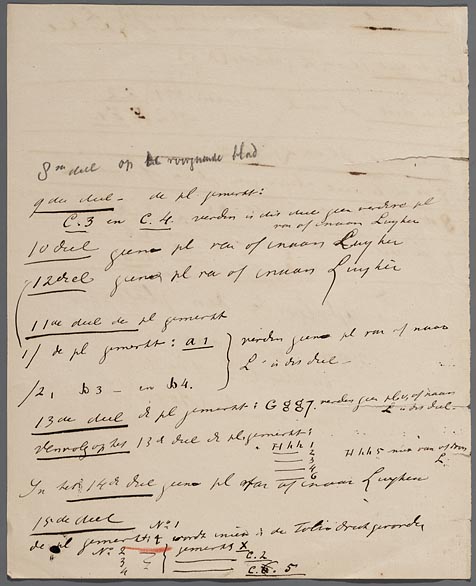 8ste deel op het voorgaande blad
9de deel - de pl gemerkt:
C.3 en C.4. verder in dit deel geen verdere pl
van of naar Luyken
10 deel geene pl van of naar Luyken
12 deel geene pl van of naar Luyken
11de deel de pl gemerkt
1/ de pl gemerkt: a 1
/2, b3 - en b4.
verder geene pl van of naar
L in dit deel -
13de deel de pl gemerkt: G g g 7. verder geen pl van of naar
L in dit deel -
vervolg op het 13de deel de pl gemerkt:
H h h 1
2
3
4
6
H h h 5 niet van of naar
L.
In het 14de deel geene pl van of naar Luyken
15de deel
No. 1
de pl gemerkt wordt in de
No. 2
3
4
gemerkt X
C. 2
C. 5